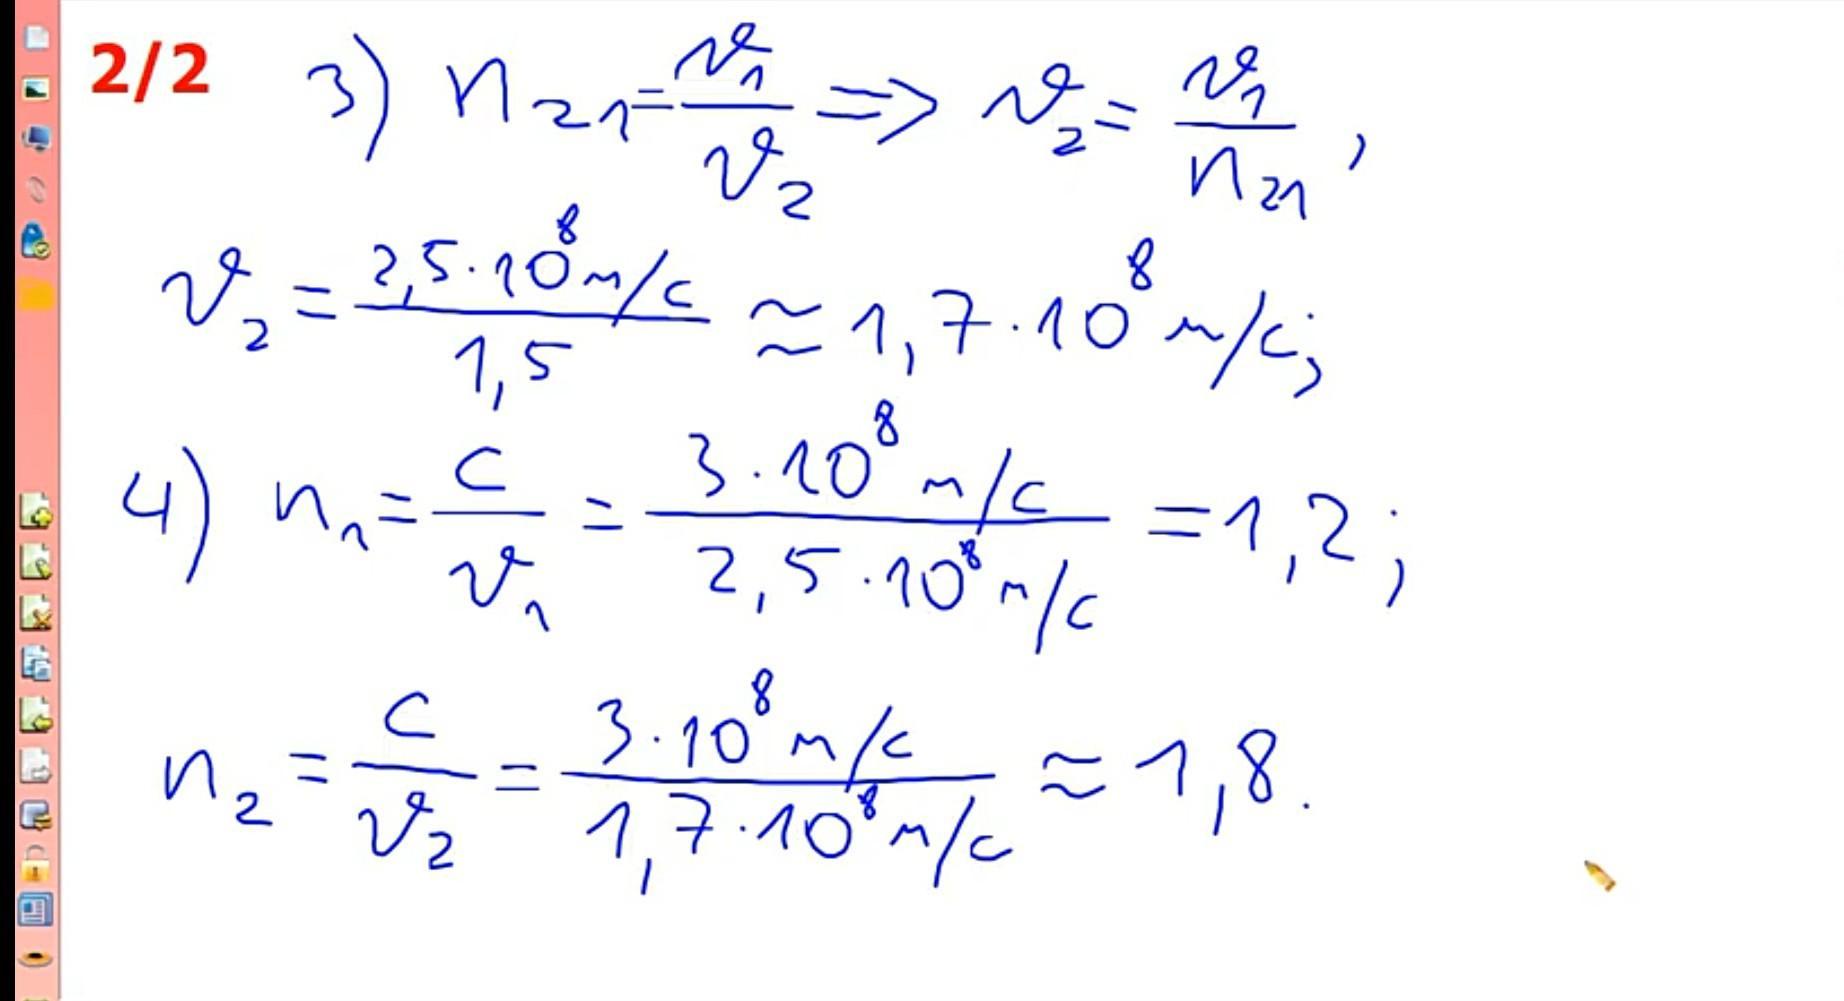 2/2
3) n₂₁ = υ₁/υ₂ => υ₂ = υ₁/n₂₁,
υ₂ = 2,5·10⁸ м/с / 1,5 ≈ 1,7·10⁸ м/с;
4) n₁ = c/υ₁ = 3·10⁸ м/с / 2,5·10⁸ м/с = 1,2;
n₂ = c/υ₂ = 3·10⁸ м/с / 1,7·10⁸ м/с ≈ 1,8.